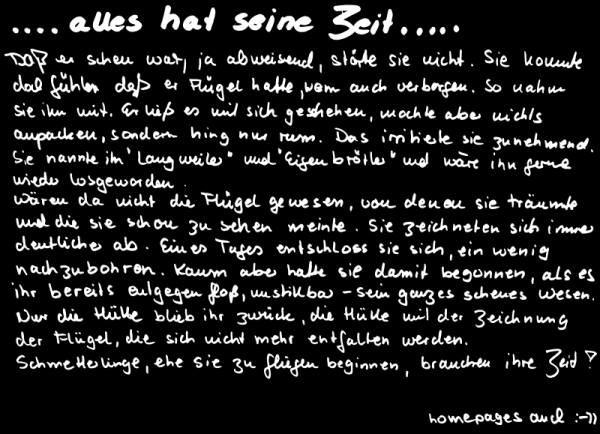 .... alles hat seine Zeit.....
Daß er scheu war, ja abweisend, störte sie nicht. Sie konnte
das fühlen daß er Flügel hatte, wenn auch verborgen. So nahm
sie ihn mit. Er ließ es mit sich geschehen, mochte aber nichts
anpacken, sondern hing nur rum. Das irritierte sie zunehmend.
Sie nannte ihn "Langweiler" und "Eigenbrötler" und wäre ihn gerne
wieder losgeworden.
Wären da nicht die Flügel gewesen, von denen sie träumte
und die sie schon zu sehen meinte. Sie zeichneten sich immer
deutlicher ab. Eines Tages entschloss sie sich, ein wenig
nachzubohren. Kaum aber hatte sie damit begonnen, als es
ihr bereits entgegen floß, unstillbar - sein ganzes scheues Wesen.
Nur die Hülle blieb ihr zurück, die Hülle mit der Zeichnung
der Flügel, die sich nicht mehr entfalten werden.
Schmetterlinge, ehe sie zu fliegen beginnen, brauchen ihre Zeit!
homepages auch :-))